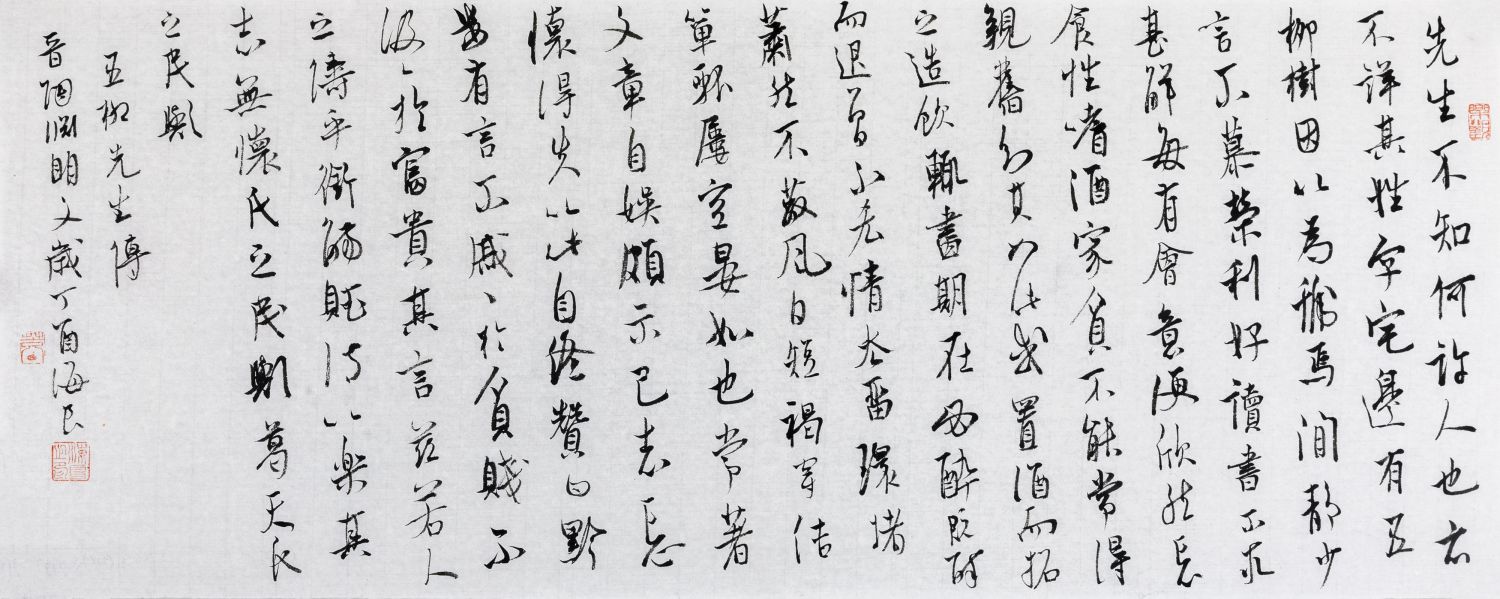 先生不知何許人也亦
不詳其姓字宅邊有五
柳樹因以為號焉閒靜少
言不慕榮利好讀書不求
甚解每有會意便欣然忘
食性嗜酒家貧不能常得
親舊知其如此或置酒而招
之造飲輒盡期在必醉既醉
而退曾不吝情去留環堵
蕭然不蔽風日短褐穿結
簞瓢屢空晏如也常著
文章自娛頗示己志忘
懷得失以此自終贊曰黔
婁有言不戚戚於貧賤不
汲汲於富貴其言茲若人
之儔乎銜觴賦詩以樂其
志無懷氏之民歟葛天氏
之民歟
五柳先生傳
晉陶淵明文歲丁酉海民